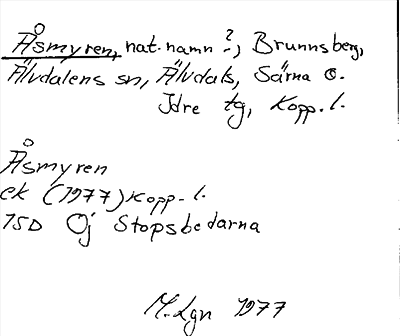 Åsmyren, nat.namn ?, Brunnsberg,
Älvdalens sn, Älvdals, Särna o.
Idre tg, Kopp. l.
Åsmyren
ek (1977) Kopp. l.
15D Öj Stopsbedarna
M. Lgn 1977